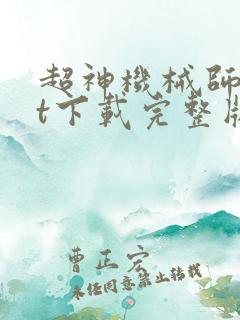 超神機械師
t下載完整版
曹正宏
未经同意禁止转载